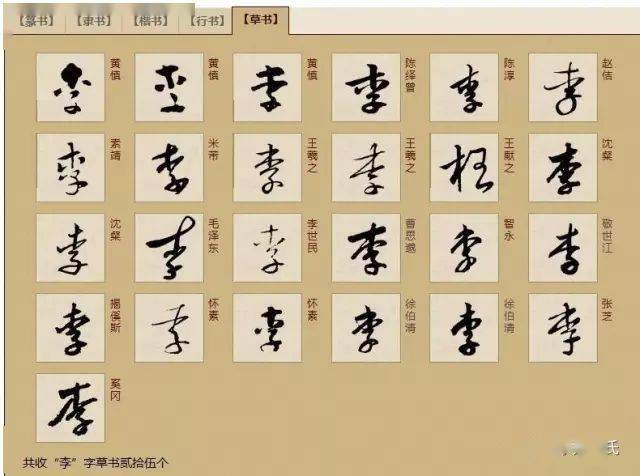 【篆书】 【隶书】 【楷书】 【行书】 【草书】
李 黄慎 李 黄慎 李 黄慎 李 陈绎曾 李 陈淳 李 赵佶
李 索靖 李 米芾 李 王羲之 李 王羲之 王献之 李 沈粲
李 沈粲 李 毛泽东 李 李世民 李 曹恩邈 李 智永 李 敬世江
李 揭傒斯 李 怀素 李 怀素 李 徐伯清 李 徐伯清 李 张芝
李 奚冈
共收“李”字草书贰拾伍个